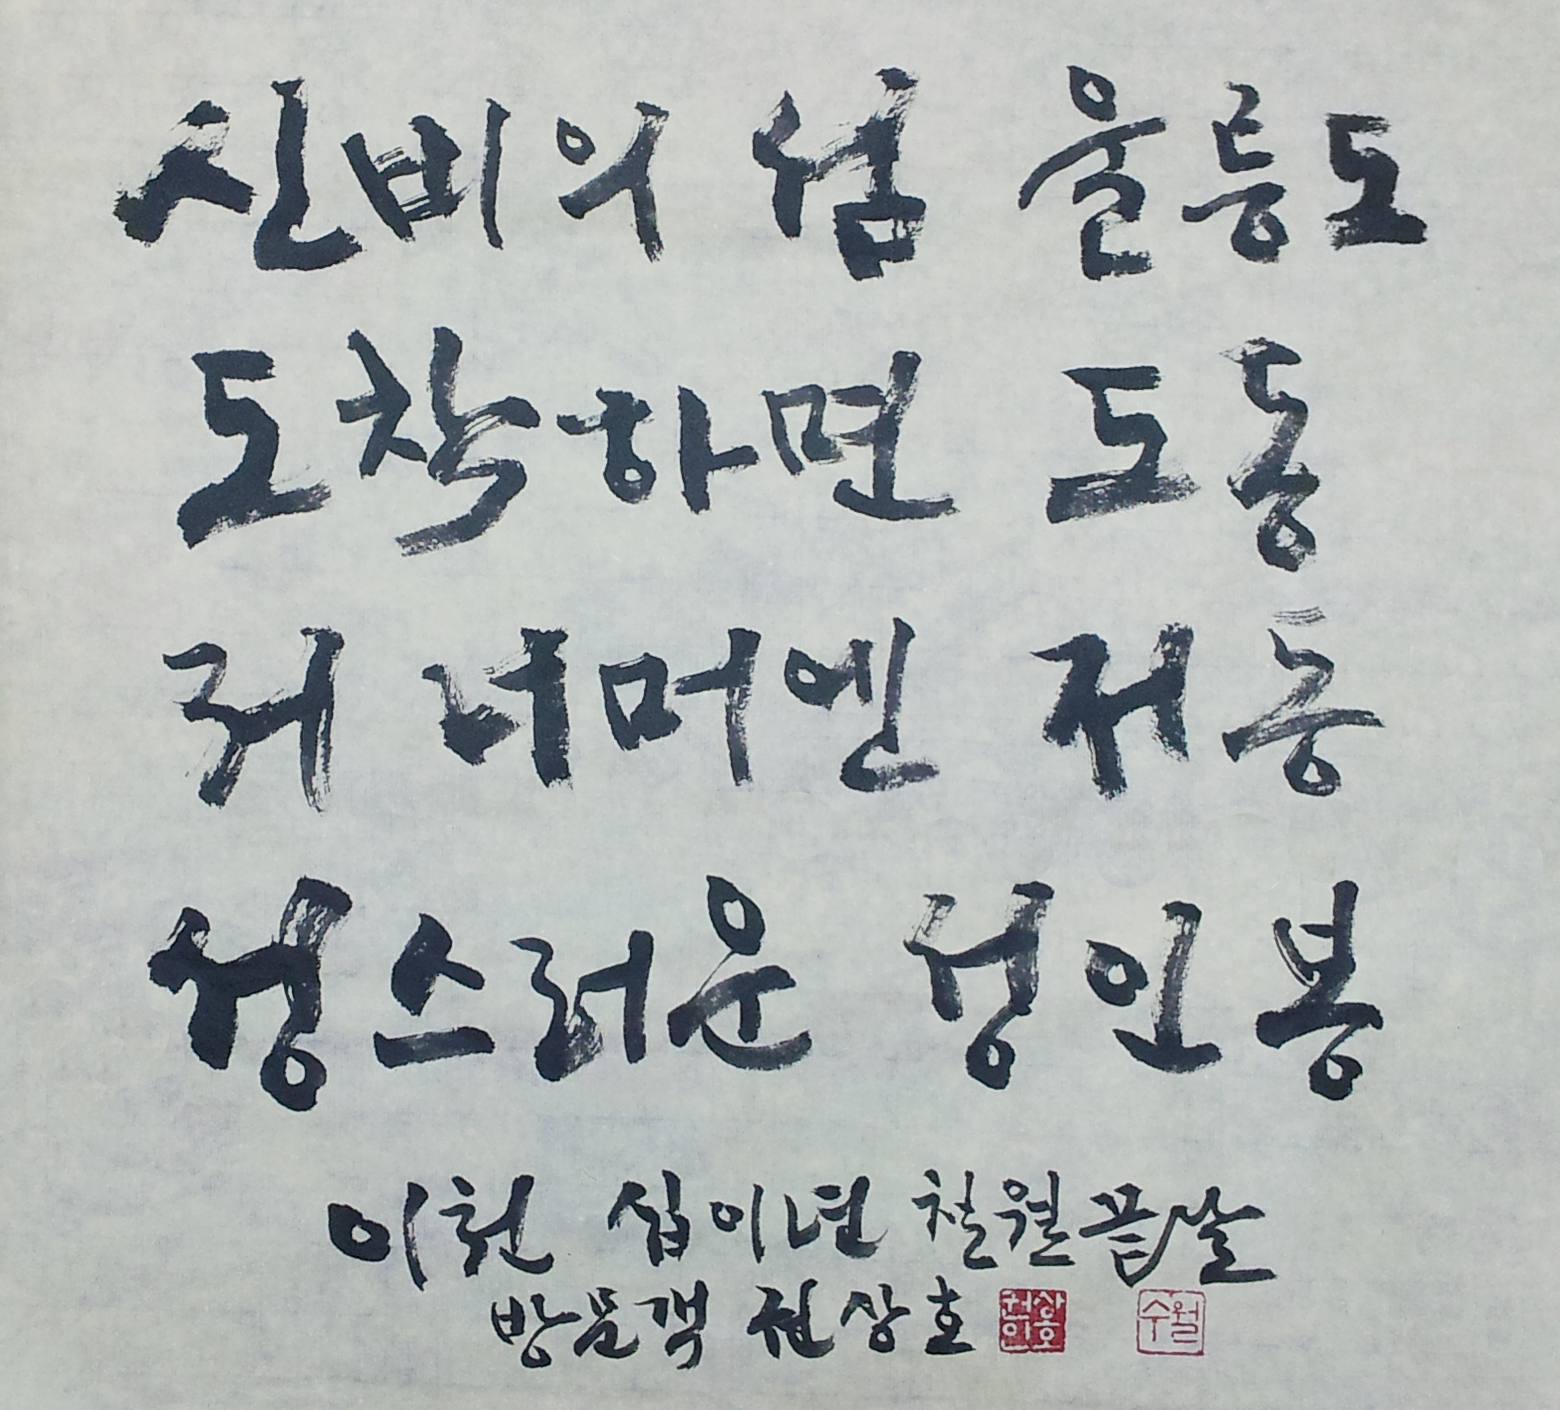 신비의 섬 울릉도
도착하면 도동
너머엔 저동
성스러운 성인봉
이천 십이년 칠월 끝날
방문객 권상호
권상
인호
수월